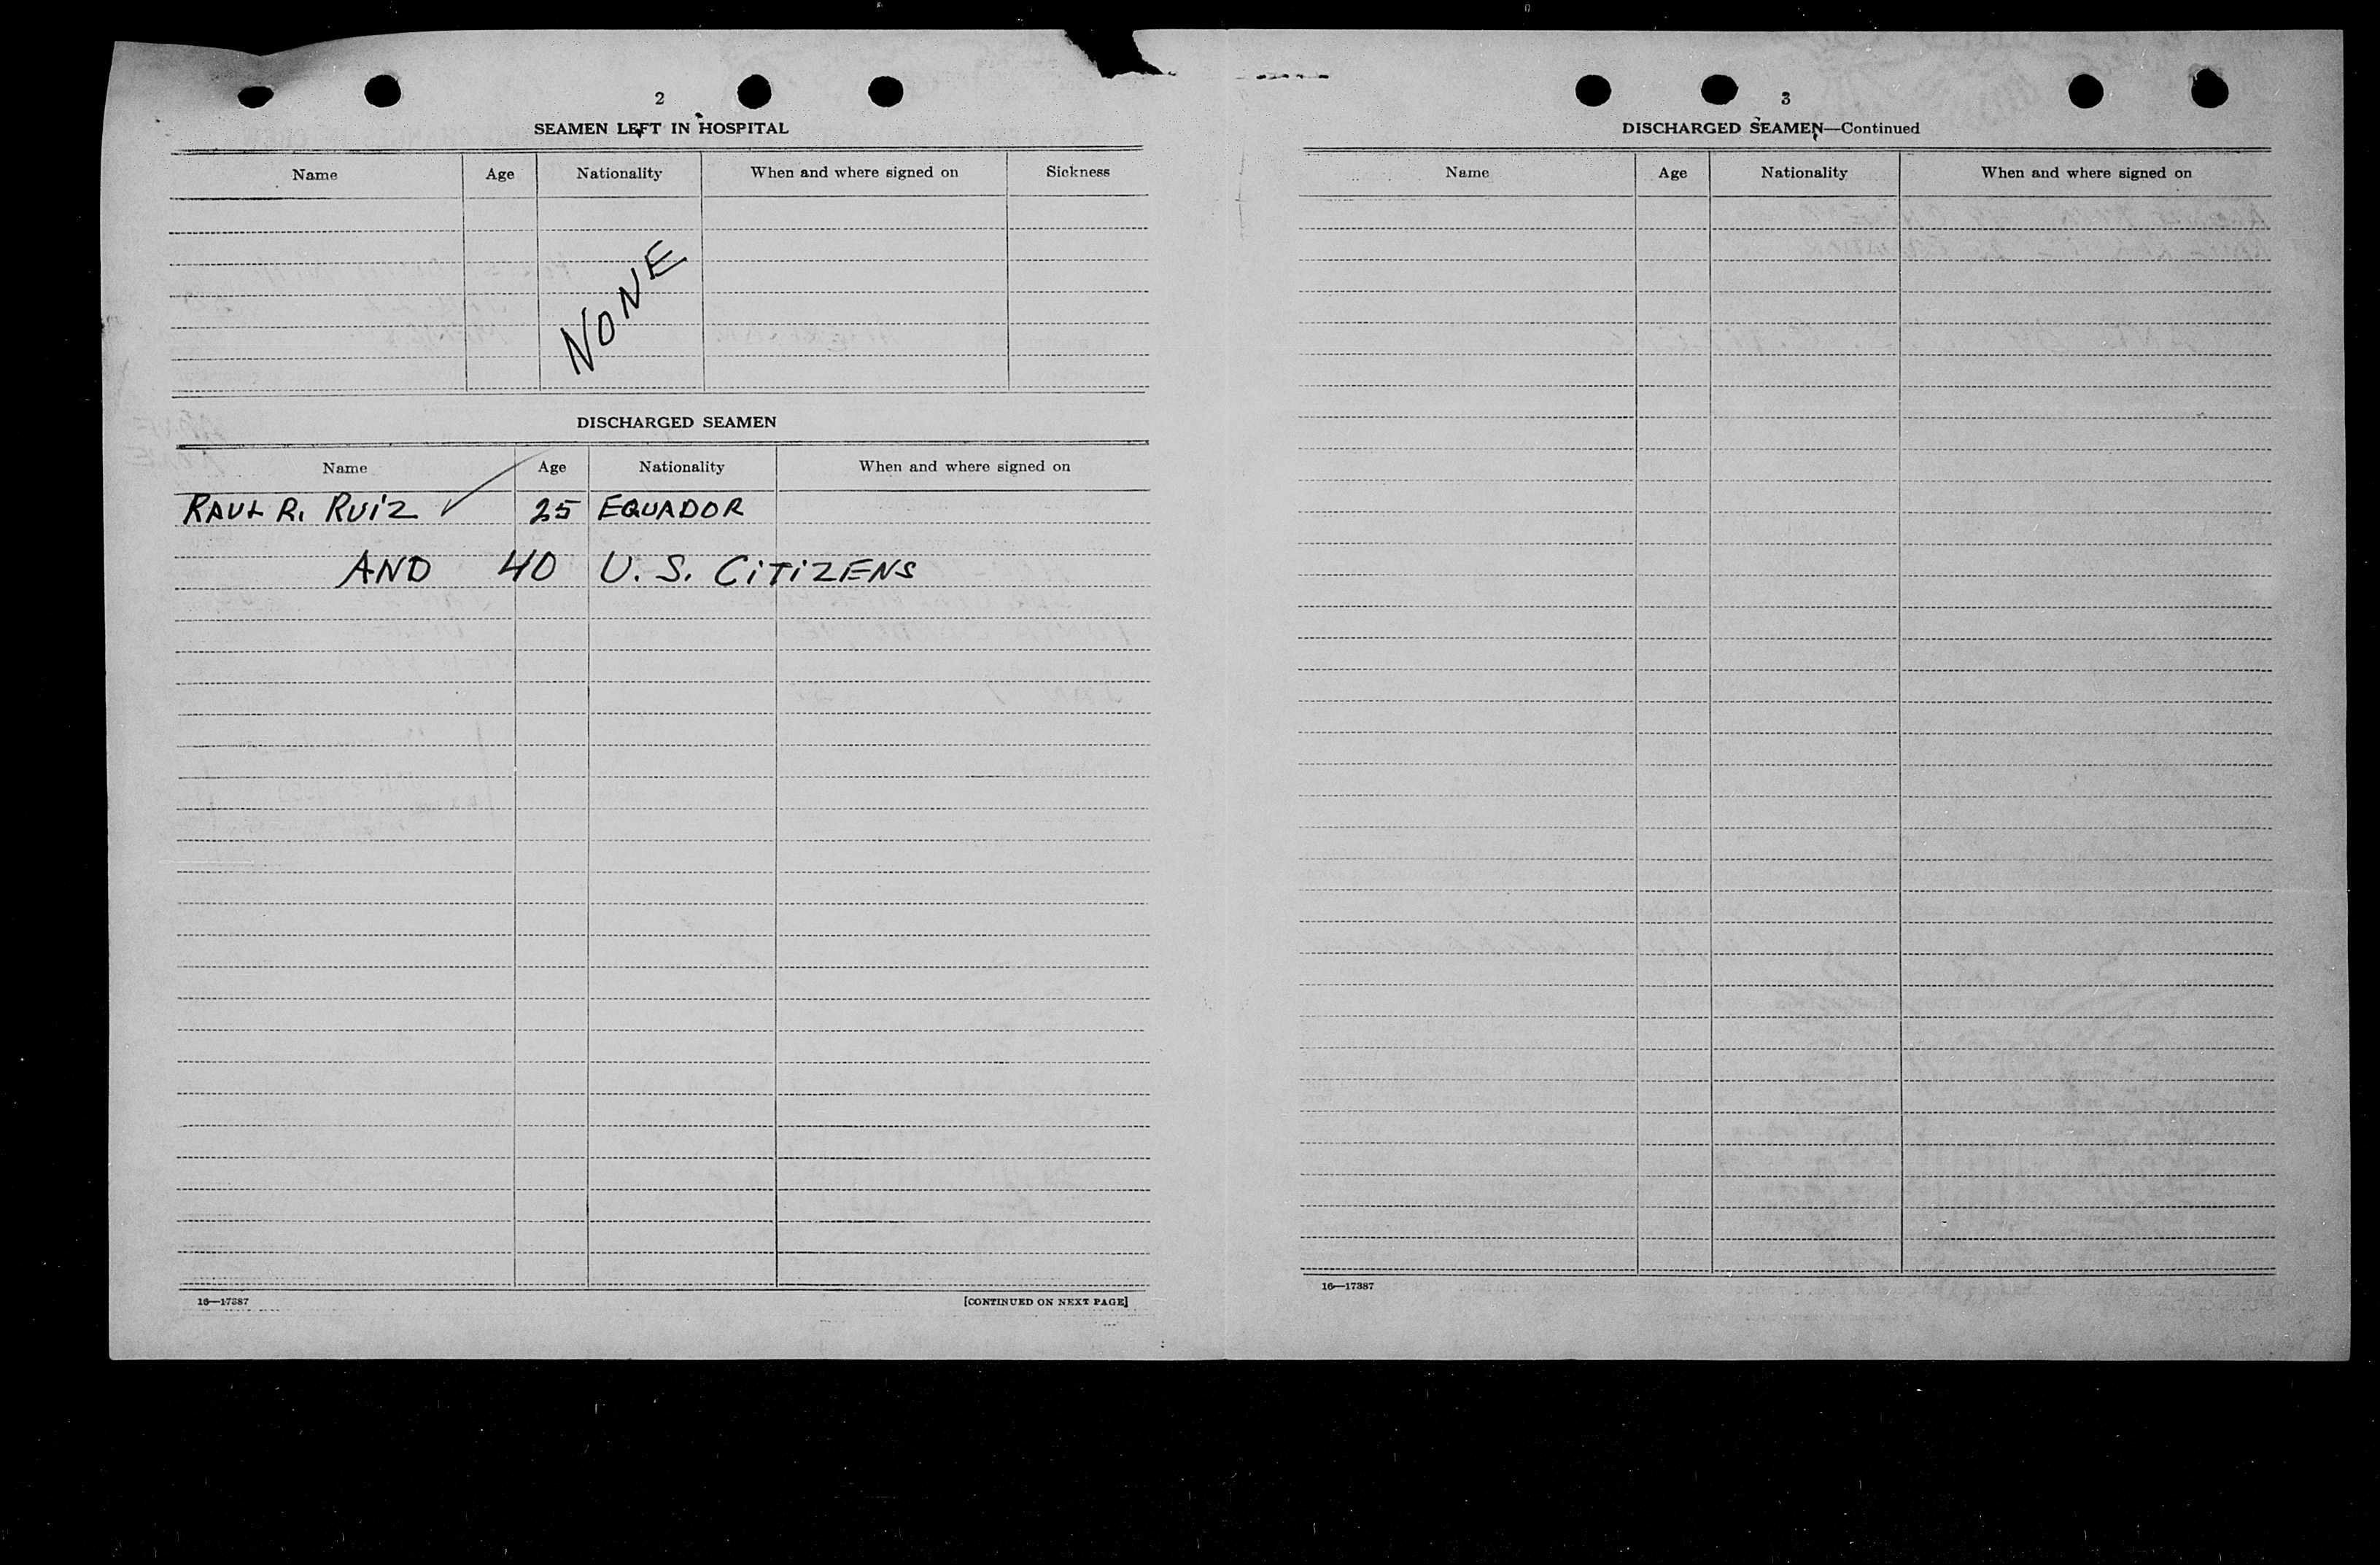 2
SEAMEN LEFT IN HOSPITAL
Name Age Nationality When and where signed on Sickness
NONE
DISCHARGED SEAMEN
Name Age Nationality When and where signed on
RAUL R. RUIZ 25 EQUADOR
AND 40 U.S. CITIZENS
16—17387 [CONTINUED ON NEXT PAGE]
3
DISCHARGED SEAMEN—Continued
Name Age Nationality When and where signed on
16—17387